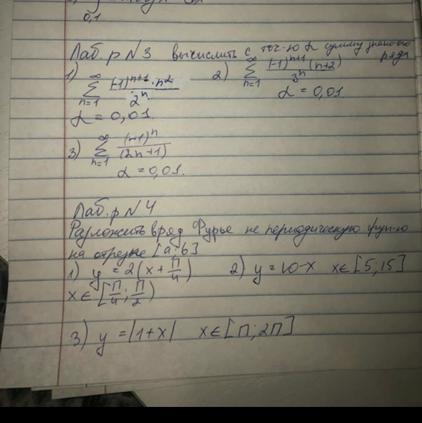 0,1
Лаб. р N 3 вычислить с точ-ю α сумму ряда
1) ∞ Σ n=1 (-1)^(n+1) · n² / 2^n 2) ∞ Σ n=1 (-1)^(n+1) (n+2) / 3^n
α = 0,01. α = 0,01
3) ∞ Σ n=1 (-1)^n / (2n+1)
α = 0,01.
Лаб. р N 4
Разложить в ряд Фурье не периодическую фун-ю
на отрезке [a; b]
1) y = 2(x + П/4) 2) y = 10-x x∈[5,15]
x∈[П/4; П/2)
3) y = |1+x| x∈[П; 2П]